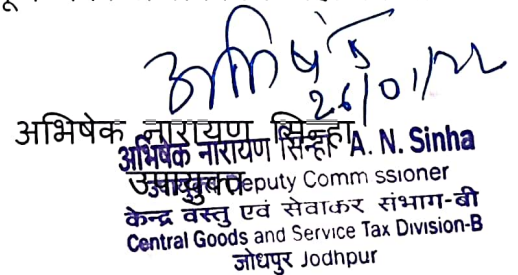 अभिषेक
26/01/22
अभिषेक नारायण सिन्हा
अभिषेक नारायण सिन्हा A. N. Sinha
उपायुक्त
उपायुक्त Deputy Comm ssioner
केन्द्र वस्तु एवं सेवाकर संभाग-बी
Central Goods and Service Tax Division-B
जोधपुर Jodhpur